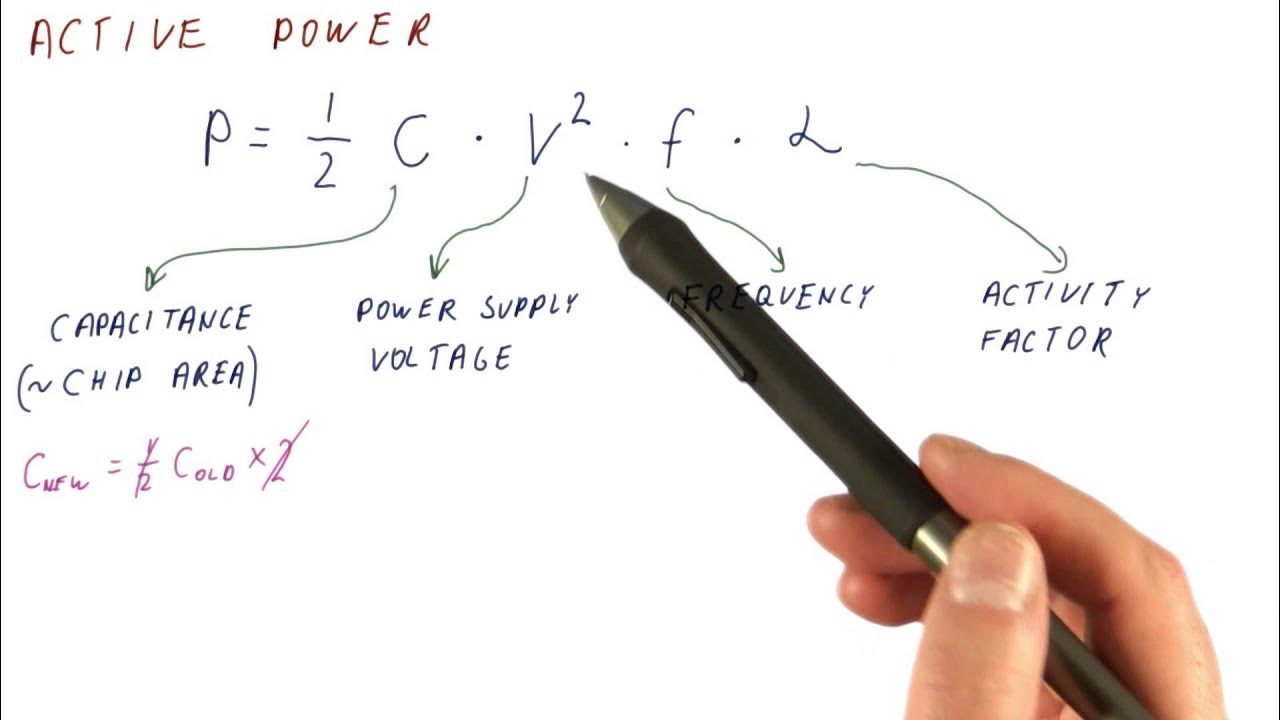 ACTIVE POWER
P = 1/2 C · V² · f · α
CAPACITANCE
(~CHIP AREA)
POWER SUPPLY
VOLTAGE
FREQUENCY
ACTIVITY
FACTOR
C_NEW = 1/2 C_OLD × 2